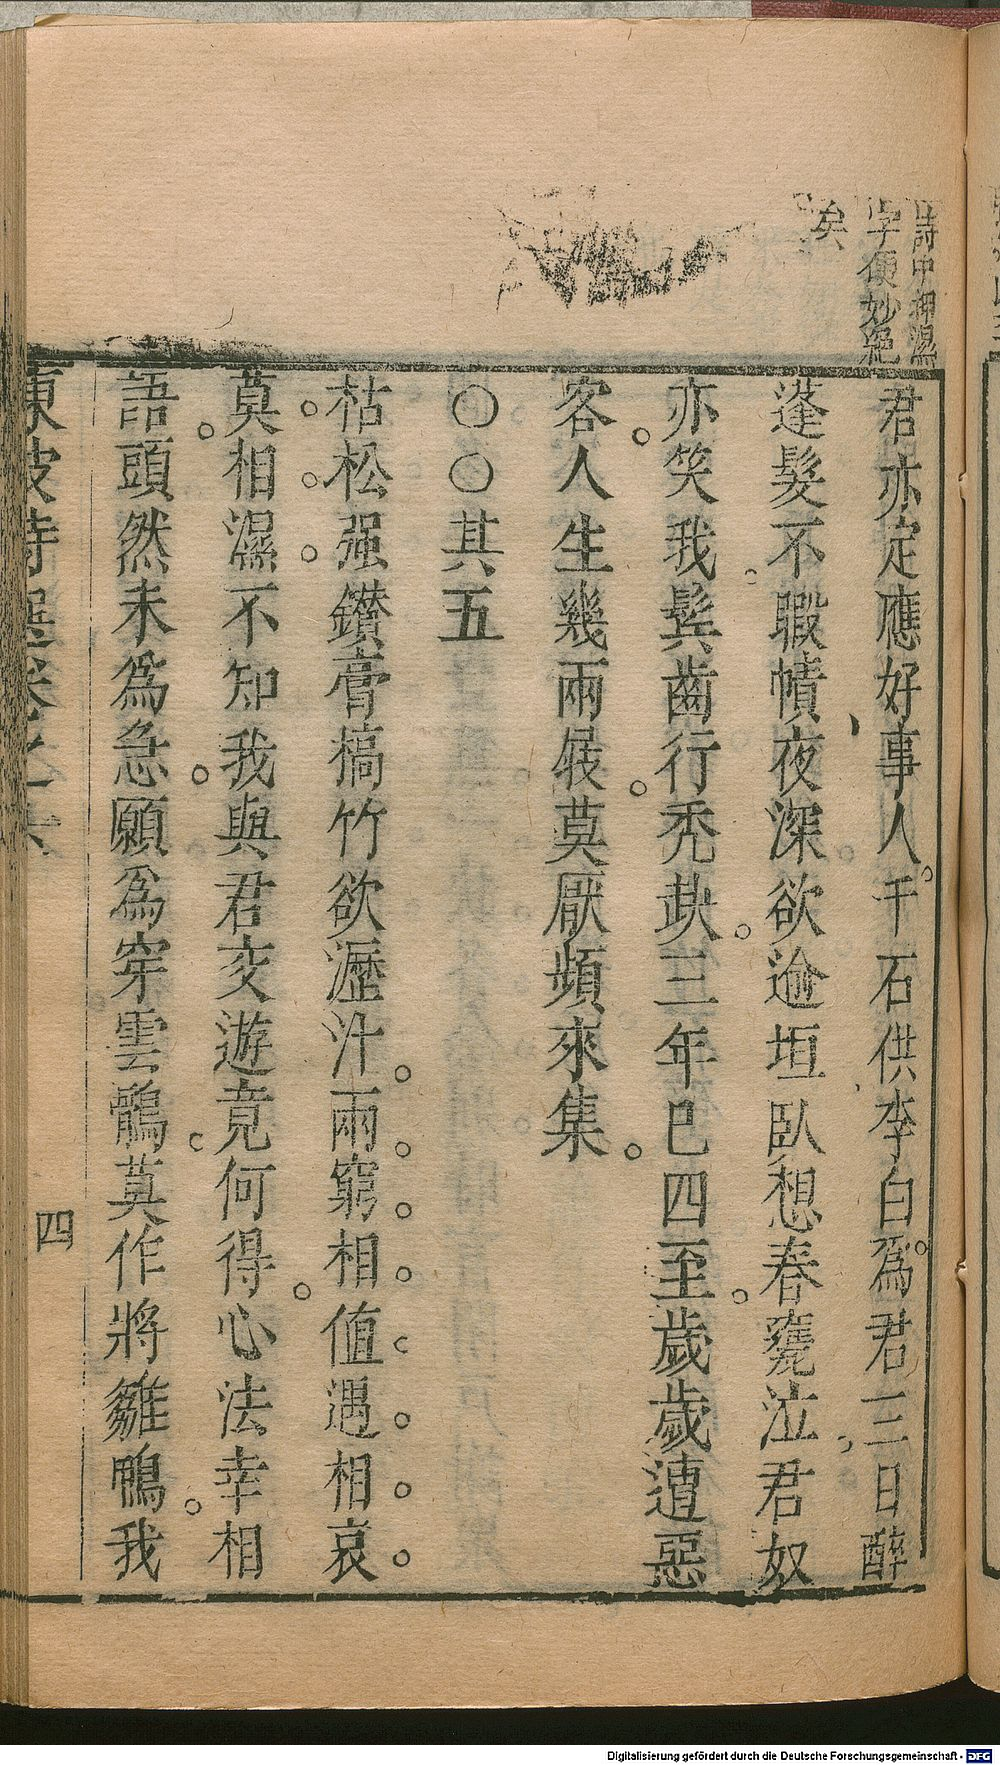 詩中押濕
字便妙絕
矣
君亦定應好事人千石供李白爲君三日醉
蓬髮不暇幘夜深欲逾垣臥想春甕泣君奴
亦笑我鬂齒行禿缺三年已四至歲歲遭惡
客人生幾兩屐莫厭頻來集
○○其五
枯松强鑚膏槁竹欲瀝汁兩窮相值遇相哀
莫相濕不知我與君交遊竟何得心法幸相
語頭然未爲急願爲穿雲鶻莫作將雛鴨我
東坡詩選卷之六
四
Digitalisierung gefördert durch die Deutsche Forschungsgemeinschaft - DFG